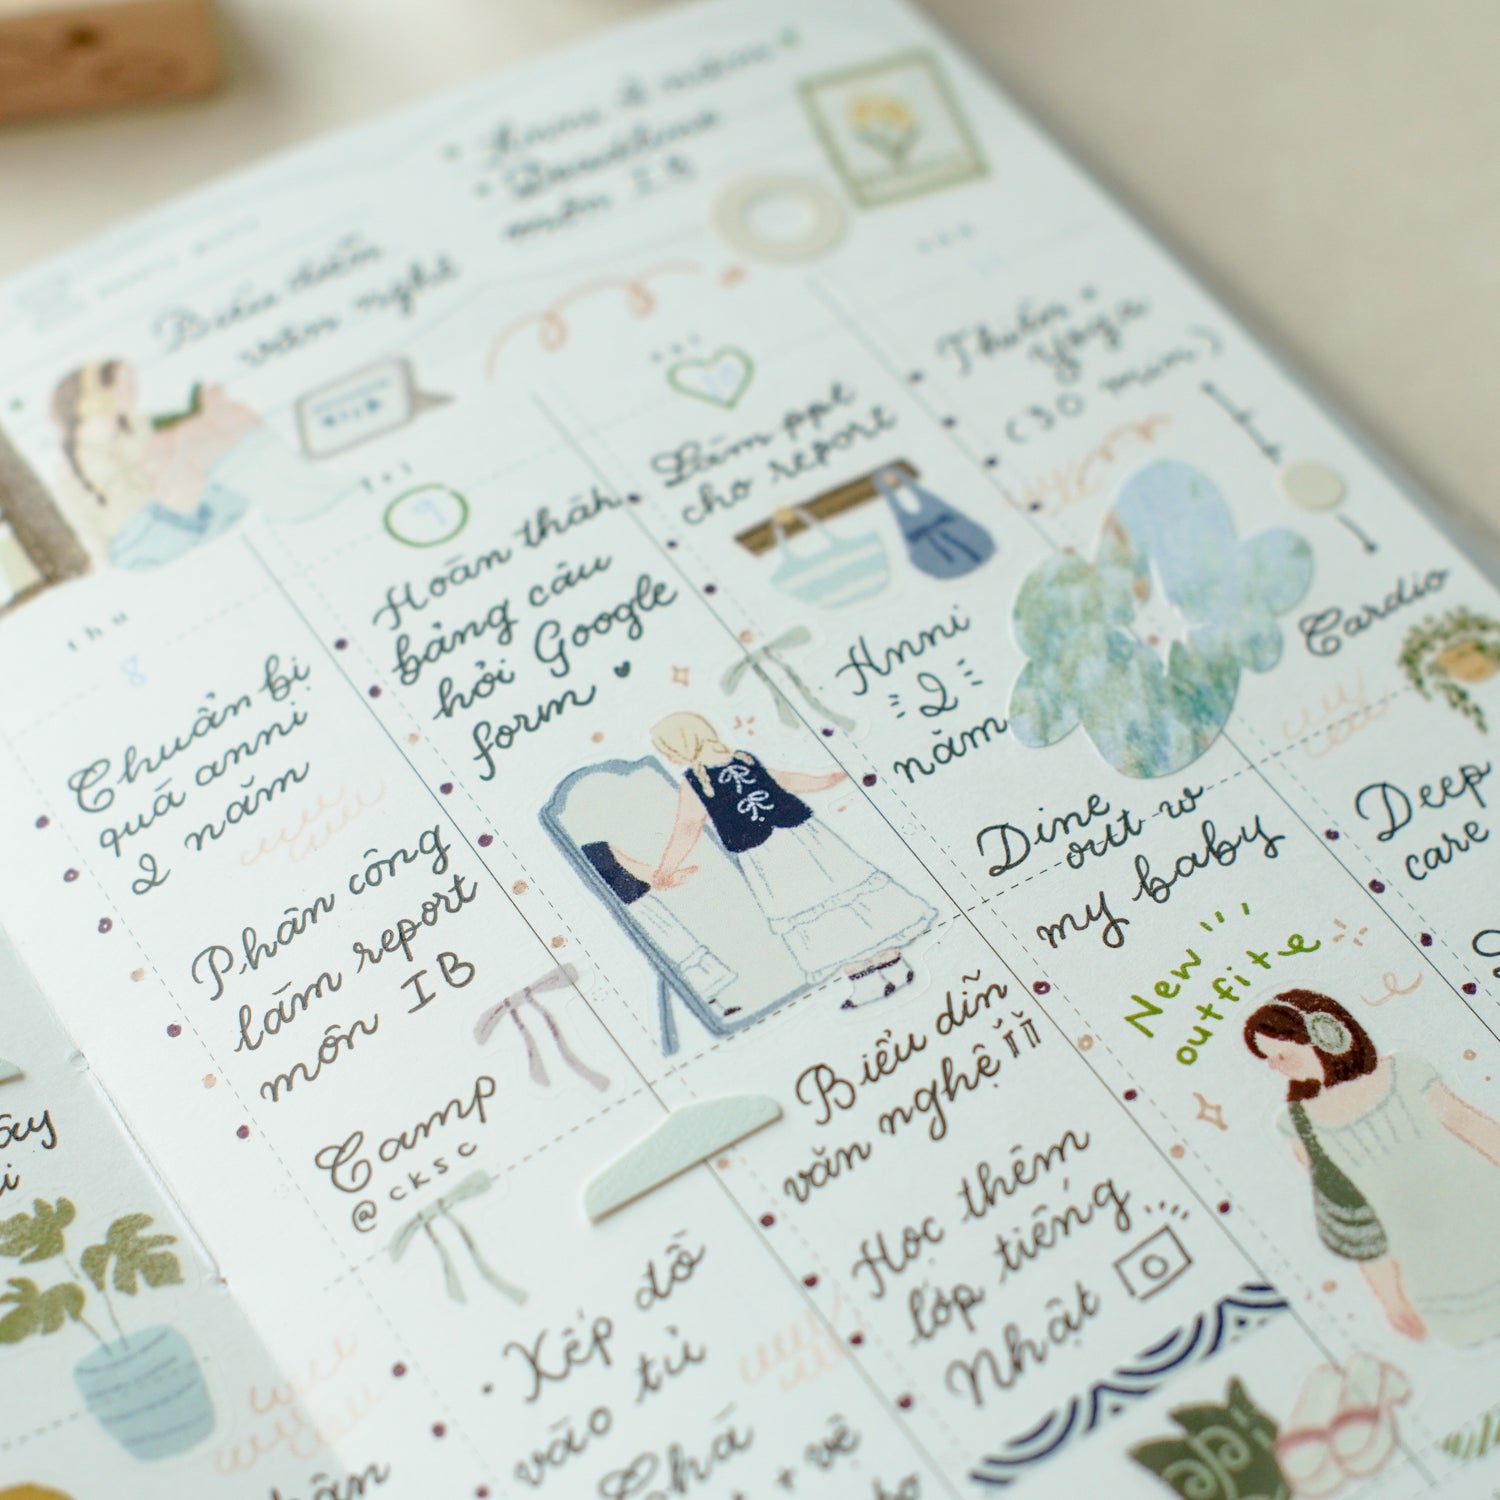 Anni 2 năm
Deadline
môn IB
Biểu diễn
văn nghệ
thu
8
Chuẩn bị
quá anni
2 năm
Phân công
làm report
môn IB
Camp
@cksc
9
Hoàn thàh
bảng câu
hỏi Google
form
Xếp đồ
vào tủ
Làm ppt
cho report
Anni
2
năm
Biểu diễn
văn nghệ
Học thêm
lớp tiếng
Nhật
+ vẽ
Thiền +
Yoga
(30 min)
Cardio
Dine
out w
my baby
New
outfite
Deep
care